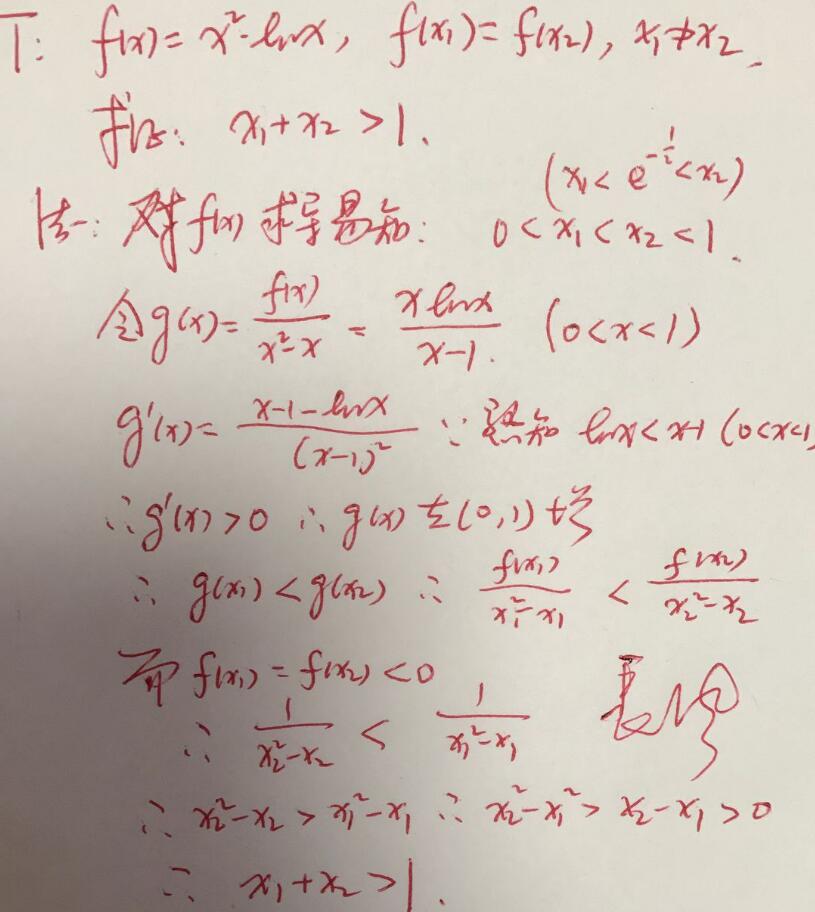 T: f(x)=x²·lnx, f(x₁)=f(x₂), x₁≠x₂.
求证: x₁+x₂>1.
(x₁<e^{-1/2}<x₂)
法一: 对f(x)求导易知: 0<x₁<x₂<1.
令g(x)=f(x)/(x²-x)=xlnx/(x-1). (0<x<1)
g'(x)=(x-1-lnx)/(x-1)² ∵熟知 lnx<x-1 (0<x<1)
∴g'(x)>0 ∴g(x)在(0,1)增
∴g(x₁)<g(x₂) ∴f(x₁)/(x₁²-x₁)<f(x₂)/(x₂²-x₂)
而f(x₁)=f(x₂)<0
∴1/(x₂²-x₂)<1/(x₁²-x₁)
∴x₂²-x₂>x₁²-x₁ ∴x₂²-x₁²>x₂-x₁>0
∴x₁+x₂>1.